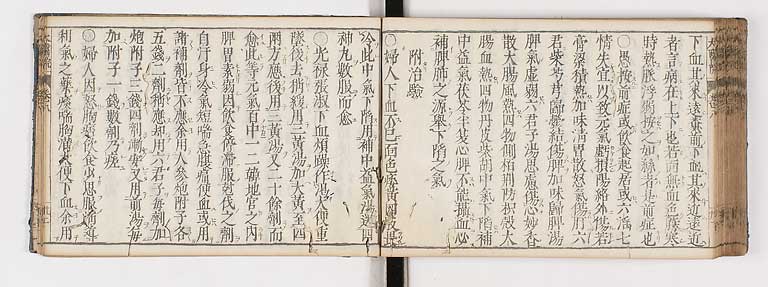 下血其來遠糞前下血其來近遠近
者言病在上下也若面無血色惡寒
時熱脈浮弱按之如絲者是前症也
愚按前症或飲食起居或六淫七
情失宜以致元氣虧損陽絡外傷若
膏粱積熱加味清胃散怒氣傷肝六
君柴芍芎歸鬱結傷脾加味歸脾湯
脾氣虛弱六君子湯思慮傷心妙香
散大腸風熱四物側栢荊防枳殼大
腸血熱四物丹皮柴胡中氣下陷補
中益氣茯苓半夏心脾不能攝血必
補脾肺之源舉下陷之氣
附治驗
婦人下血不已面色痿黃四支
冷此中氣下陷用補中益氣湯送四
神丸數服而愈
光祿張淑人下血煩躁作渴大便重
墜後去稍緩用三黃湯加大黃至四
兩方應後用三黃湯又二十餘劑而
愈此等元氣百中一二
脾胃素弱因飲食停滯服尅伐之劑
自汗身冷氣短喘急腹痛便血或用
諸補劑皆不應余用人參炮附子各
五錢二劑稍應却用六君子每劑加
炮附子一錢四劑漸安又用前湯每
加附子一錢數劑乃瘥
婦人因怒胸痞飲食少思服消導
利氣之藥痞痛胸滿大便下血余用